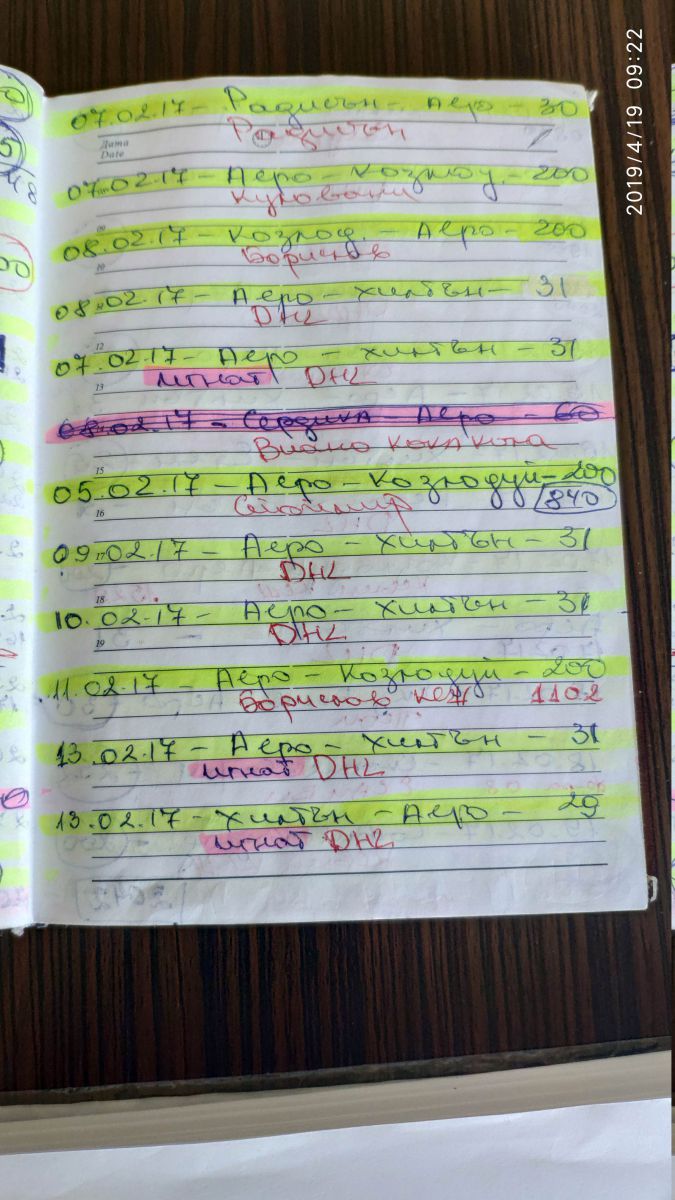 2019/4/19 09:22
07.02.17 - Радисън - Аеро - 30
Радисън
Дата
Date
07.02.17 - Аеро - Козлод. - 200
08.02.17 - Козлод. - Аеро - 200
Борисов
08.02.17 - Аеро - Хилтън - 31
DHL
07.02.17 - Аеро - Хилтън - 31
Игнат DHL
08.02.17 - Сердика - Аеро - 60
Кока Кола
05.02.17 - Аеро - Козлодуй - 200
840
09.02.17 - Аеро - Хилтън - 31
DHL
10.02.17 - Аеро - Хилтън - 31
DHL
11.02.17 - Аеро - Козлодуй - 200
Борисов кеш 1102
13.02.17 - Аеро - Хилтън - 31
Игнат DHL
13.02.17 - Хилтън - Аеро - 29
Игнат DHL